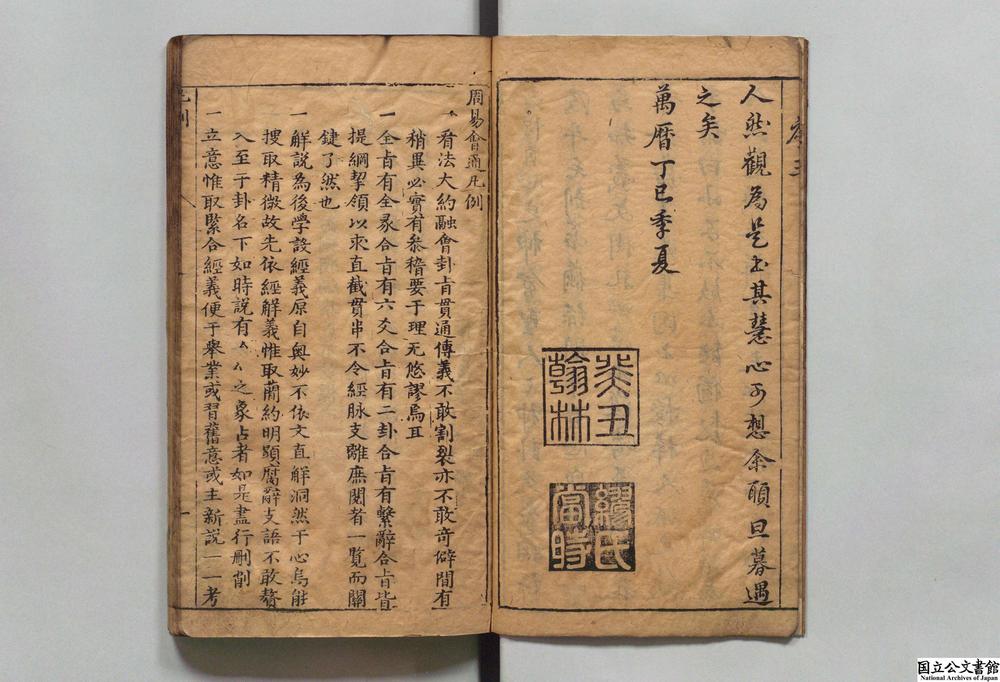 序 三
人然觀為是書其慧心可想余願旦暮遇
之矣
萬曆丁巳季夏
癸丑翰林
繆氏當時
周易會通凡例
一看法大約融會卦㫖貫通傳義不敢割裂亦不敢奇僻間有
稍異必實有叅稽要于理无悠謬焉耳
一全㫖有全彖合㫖有六爻合㫖有二卦合㫖有繫辭合㫖皆
提綱挈領以來直截貫串不令經脉支離庶閱者一覧而關
鍵了然也
一解說為後学設經義原自奥妙不依文直解洞然于心烏能
搜取精微故先依經解義惟取蕳約明顕腐辭支語不敢贅
入至于卦名下如時說有厶厶之象占者如是盡行刪削
一立意惟取緊合經義便于舉業或習舊意或主新說一一考
凡例
一
国立公文書館
National Archives of Japan